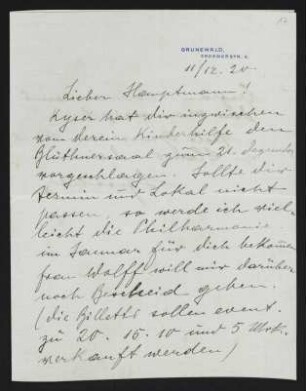 GRUNEWALD,
11/12. 20
Lieber Hauptmann!
Kyser hat dir inzwischen
vom Verein Kinderhilfe den
Blüthnersaal zum 21. Dezember
vorgeschlagen. Sollte dir
Termin und Lokal nicht
passen, so werde ich viel-
leicht die Philharmonie
im Januar für dich bekommen
Frau Wolff will mir darüber
noch Bescheid geben.
(die Billetts sollen event.
zu 20. 15. 10 und 5 Mrk.
verkauft werden)